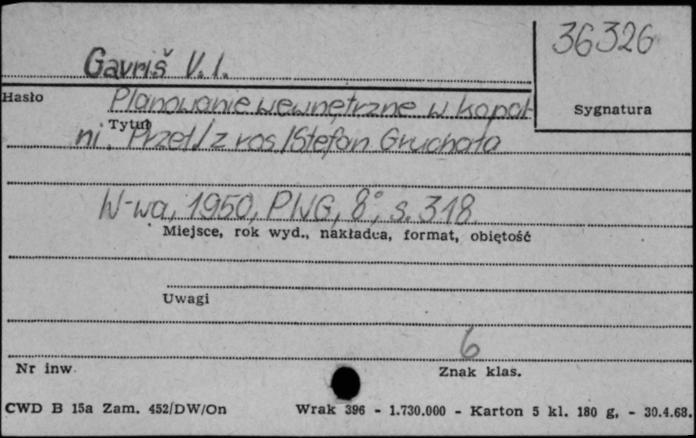 36326
Gavriš V. I.
Hasło
Sygnatura
Planowanie wewnętrzne w kopal-
Tytuł
ni. Przeł /z ros/ Stefan Gruchała
W-wa, 1950, PWG, 8°, s. 318
Miejsce, rok wyd., nakładca, format, objętość
Uwagi
6
Nr inw.
Znak klas.
CWD B 15a Zam. 452/DW/On Wrak 396 - 1.730.000 - Karton 5 kl. 180 g. - 30.4.68.